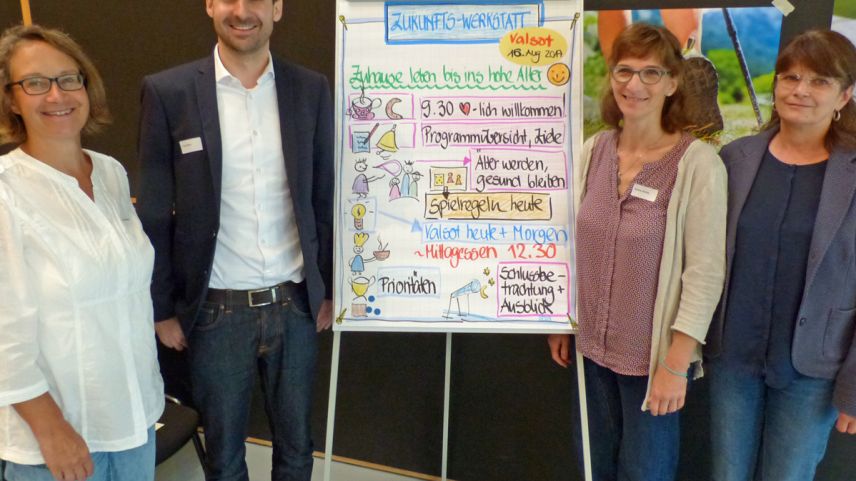 ZUKUNFTS-WERKSTATT
Valsot
16. Aug. 2017
Zuhause leben bis ins hohe Alter
9.30 -lich willkommen!
Programmübersicht, Ziele
Älter werden,
gesund bleiben
Spielregeln heute
Valsot heute + Morgen
~Mittagessen 12.30
Prioritäten
Schlussbe-
trachtung +
Ausblick